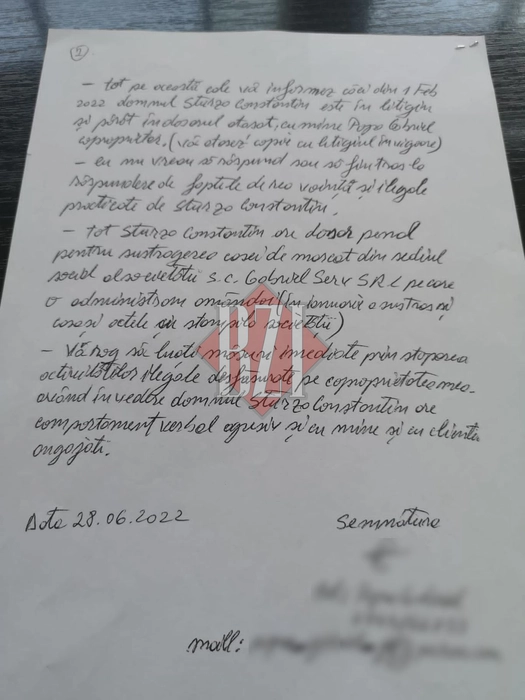 2
- tot pe această cale vă informez căci din 1 Feb
2022 domnul Sturzo Constantin este în litigiu
și pârât în dosarul atașat, cu mine Popa Gabriel
coproprietar. (vă atașez copie cu litigiul în vigoare)
- eu nu vreau să răspund sau să fiu tras la
răspundere de faptele de rea voință și ilegale
practicate de Sturzo Constantin.
- tot Sturzo Constantin are dosar penal
pentru sustragerea casei de marcat din sediul
social al societății S.C. Gabriel Serv SRL pe care
o administram amândoi (în ianuarie a sustras și
casa și actele cu stampila societății)
- Vă rog să luați măsuri imediate prin stoparea
activităților ilegale desfășurate pe coproprietatea mea.
având în vedere domnul Sturzo Constantin are
comportament verbal agresiv și cu mine și cu clienții
angajați.
BZI
Data 28.06.2022 Semnătura
mail: